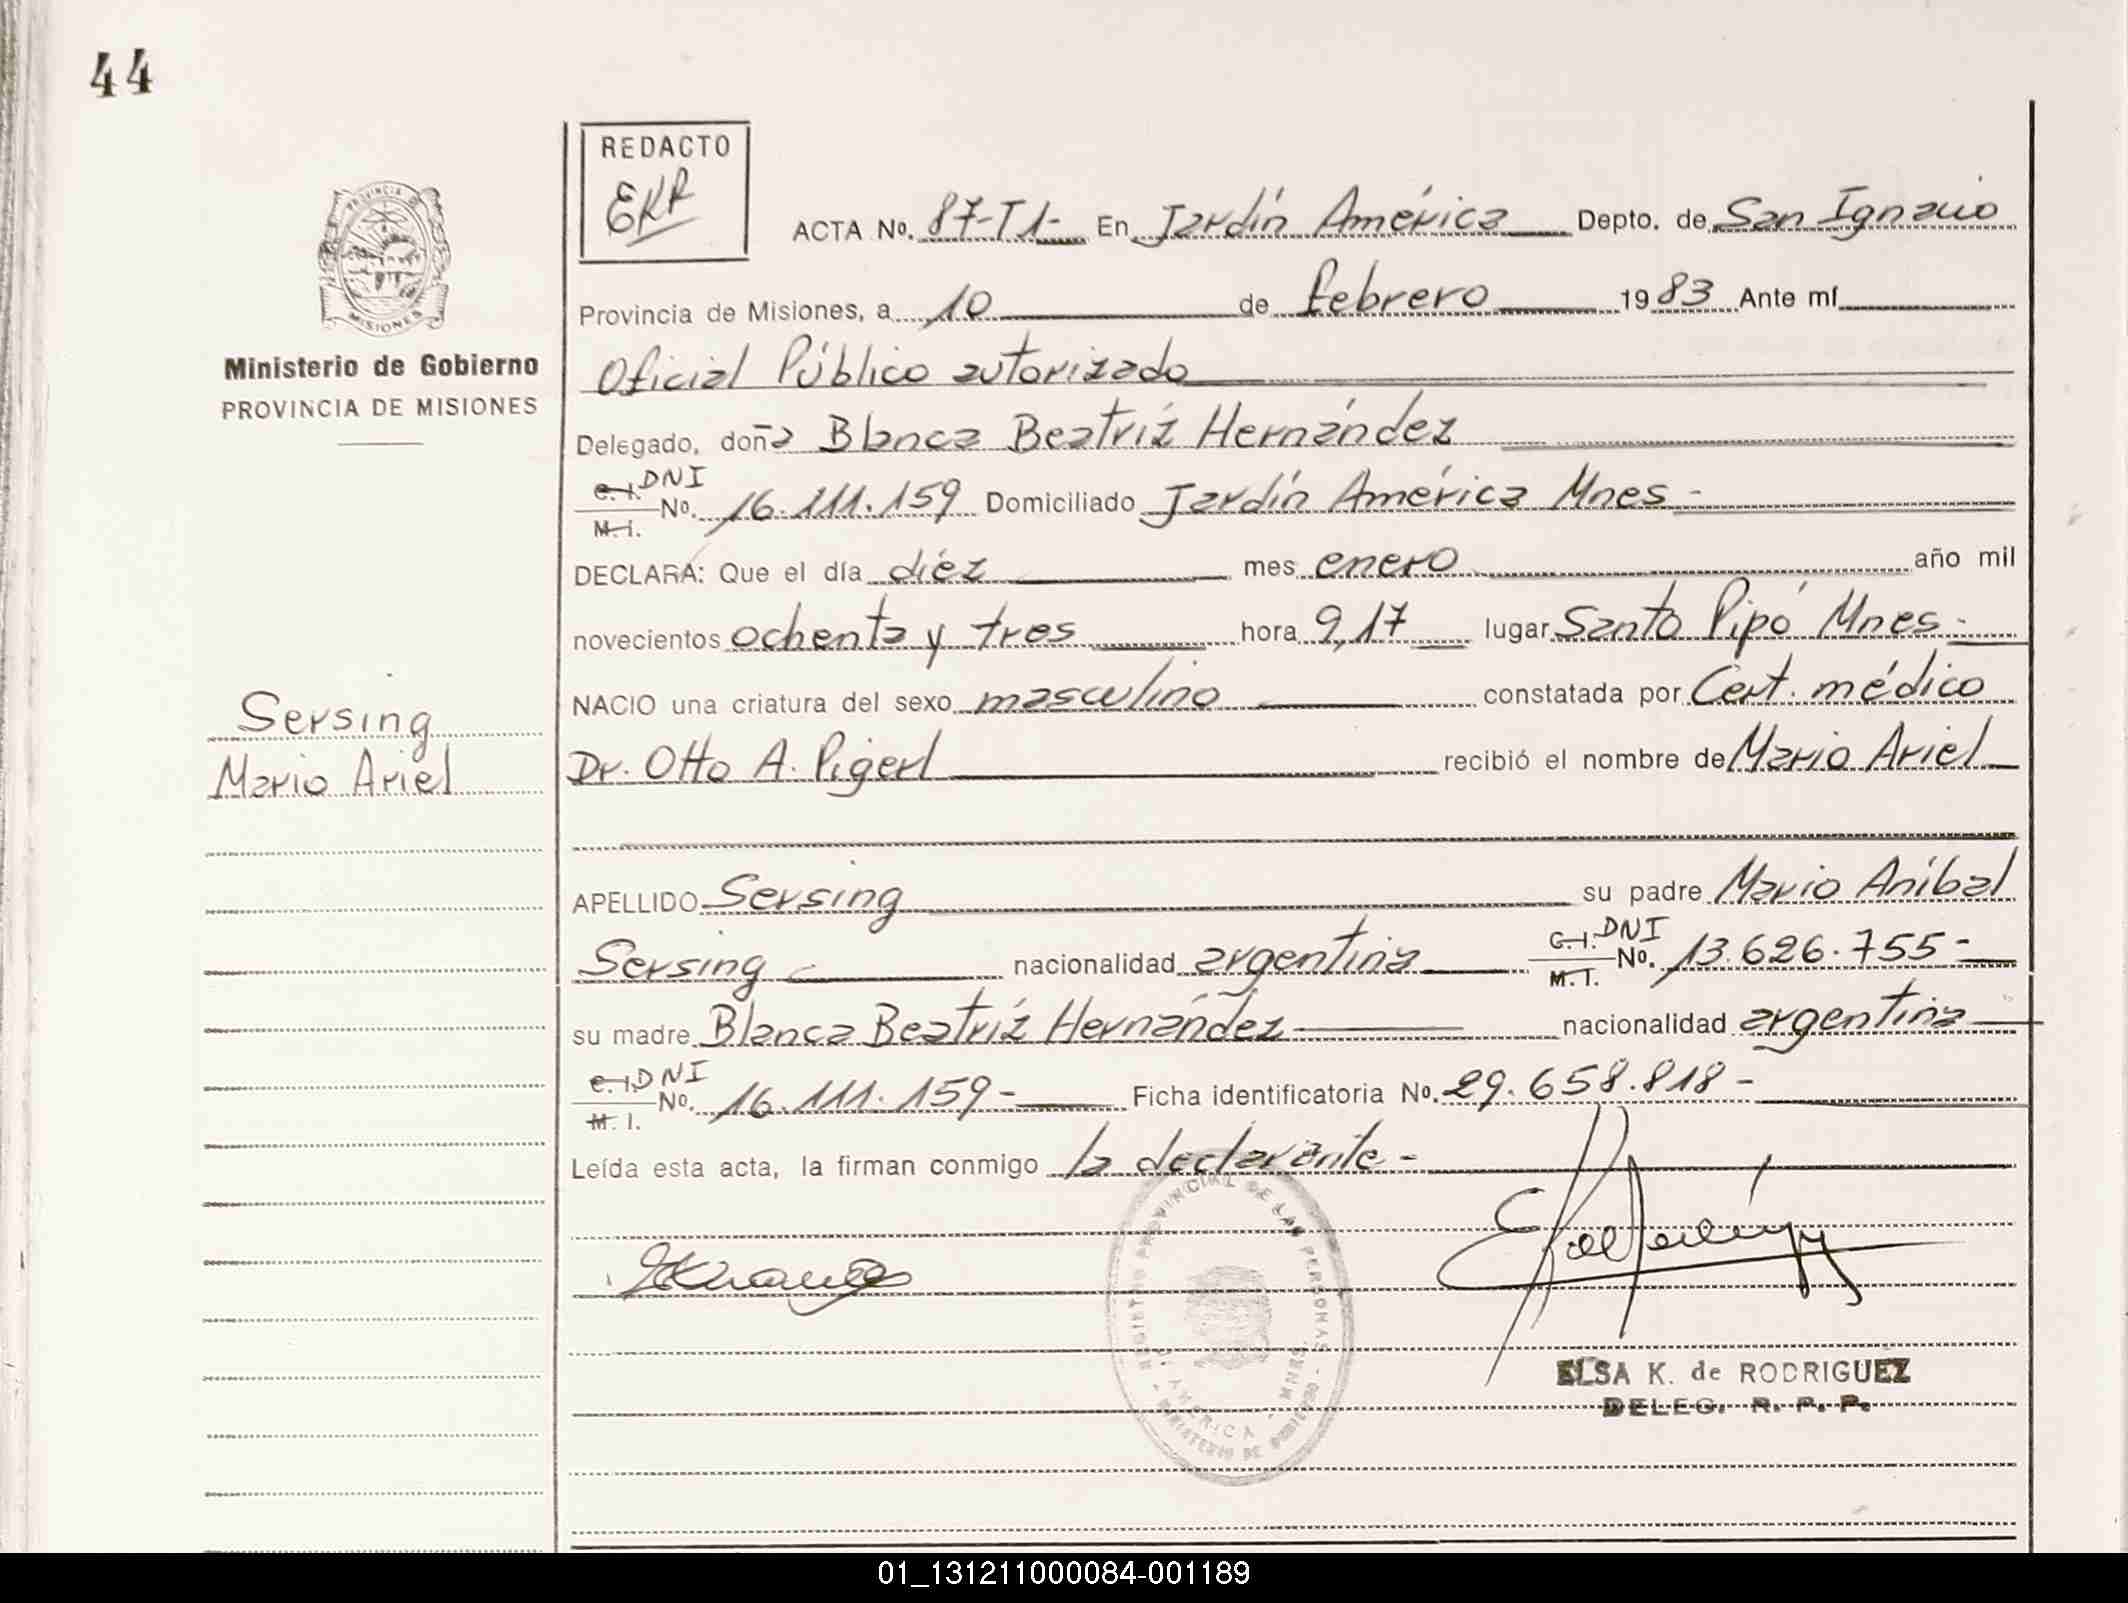 44
REDACTO
EKR
ACTA No. 87-T1- En Jardín América Depto. de San Ignacio
PROVINCIA DE
MISIONES
Provincia de Misiones, a 10 de febrero 1983 Ante mí
Ministerio de Gobierno
PROVINCIA DE MISIONES
Oficial Público autorizado
Delegado, doña Blanca Beatríz Hernández
C. I. DNI
M. I. No. 16.111.159 Domiciliado Jardín América Mnes -
DECLARA: Que el día diéz mes enero año mil
novecientos ochenta y tres hora 9,17 lugar Santo Pipó Mnes -
NACIO una criatura del sexo masculino constatada por Cert. médico
Sersing
Mario Ariel
Dr. Otto A. Pigerl recibió el nombre de Mario Ariel
APELLIDO Sersing su padre Mario Aníbal
Sersing nacionalidad argentina C. I. DNI M. I. No. 13.626.755-
su madre Blanca Beatríz Hernández nacionalidad argentina
C. I. DNI
M. I. No. 16.111.159- Ficha identificatoria No. 29.658.818-
Leída esta acta, la firman conmigo la declarante-
REGISTRO PROVINCIAL DE LAS PERSONAS
J. AMERICA - MNES.
MINISTERIO DE GOBIERNO
ELSA K. de RODRIGUEZ
DELEG. R. P. P.
01_131211000084-001189